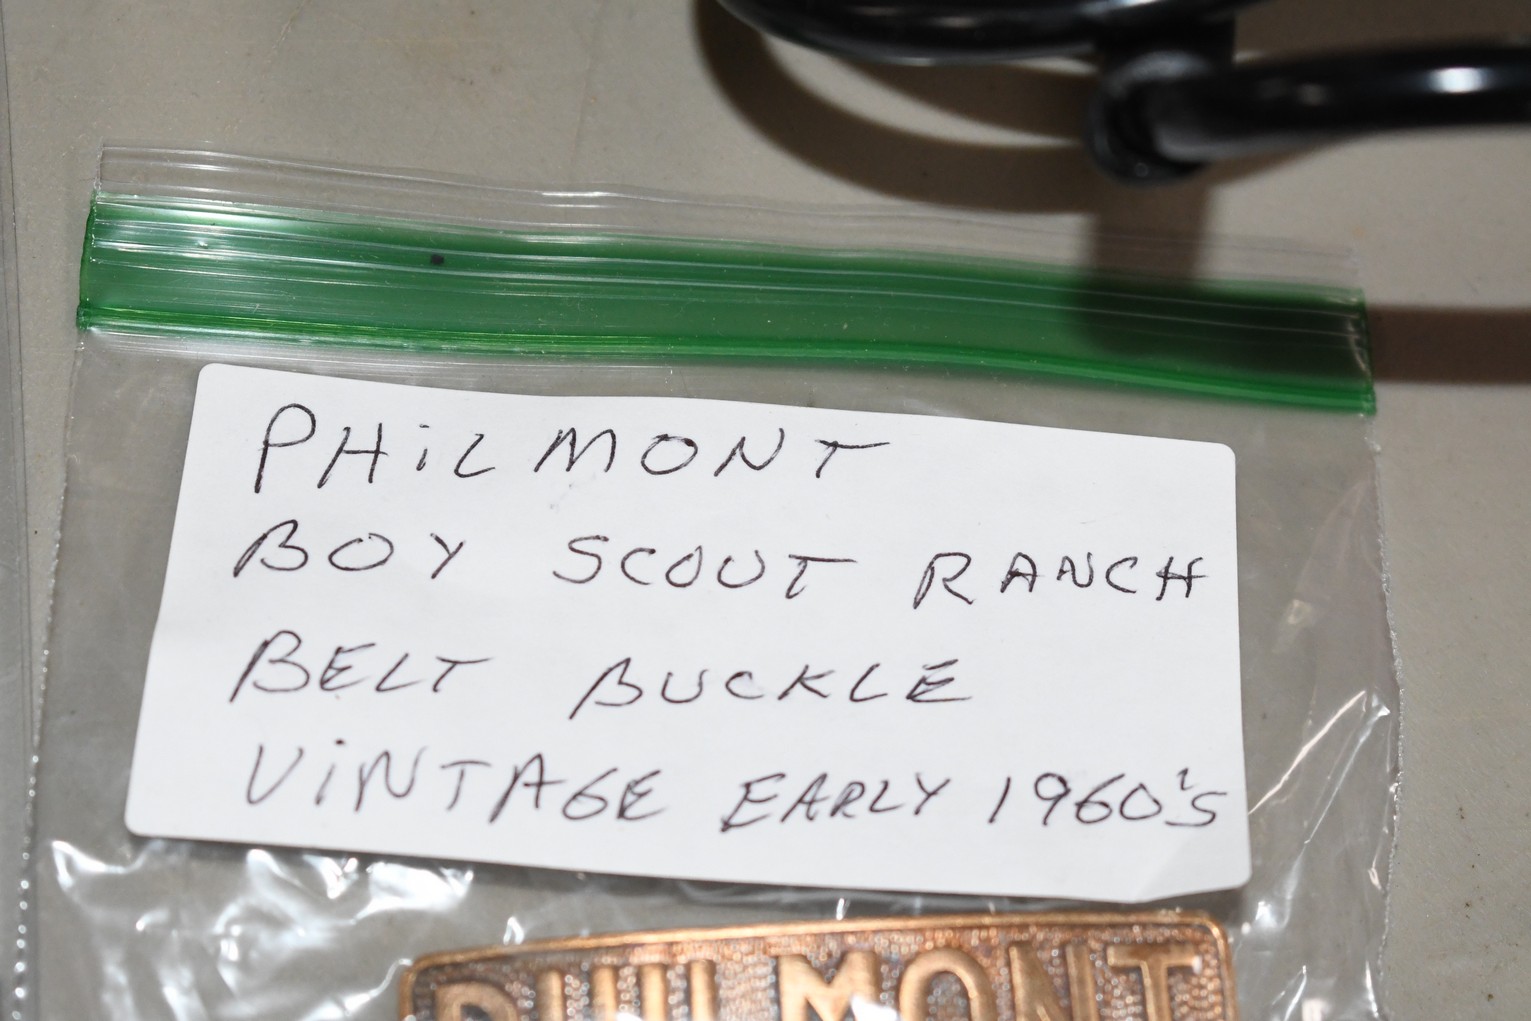 PHiLMONT
BOY SCOUT RANCH
BELT BUCKLE
ViNTAGE EARLY 1960's
PHILMONT